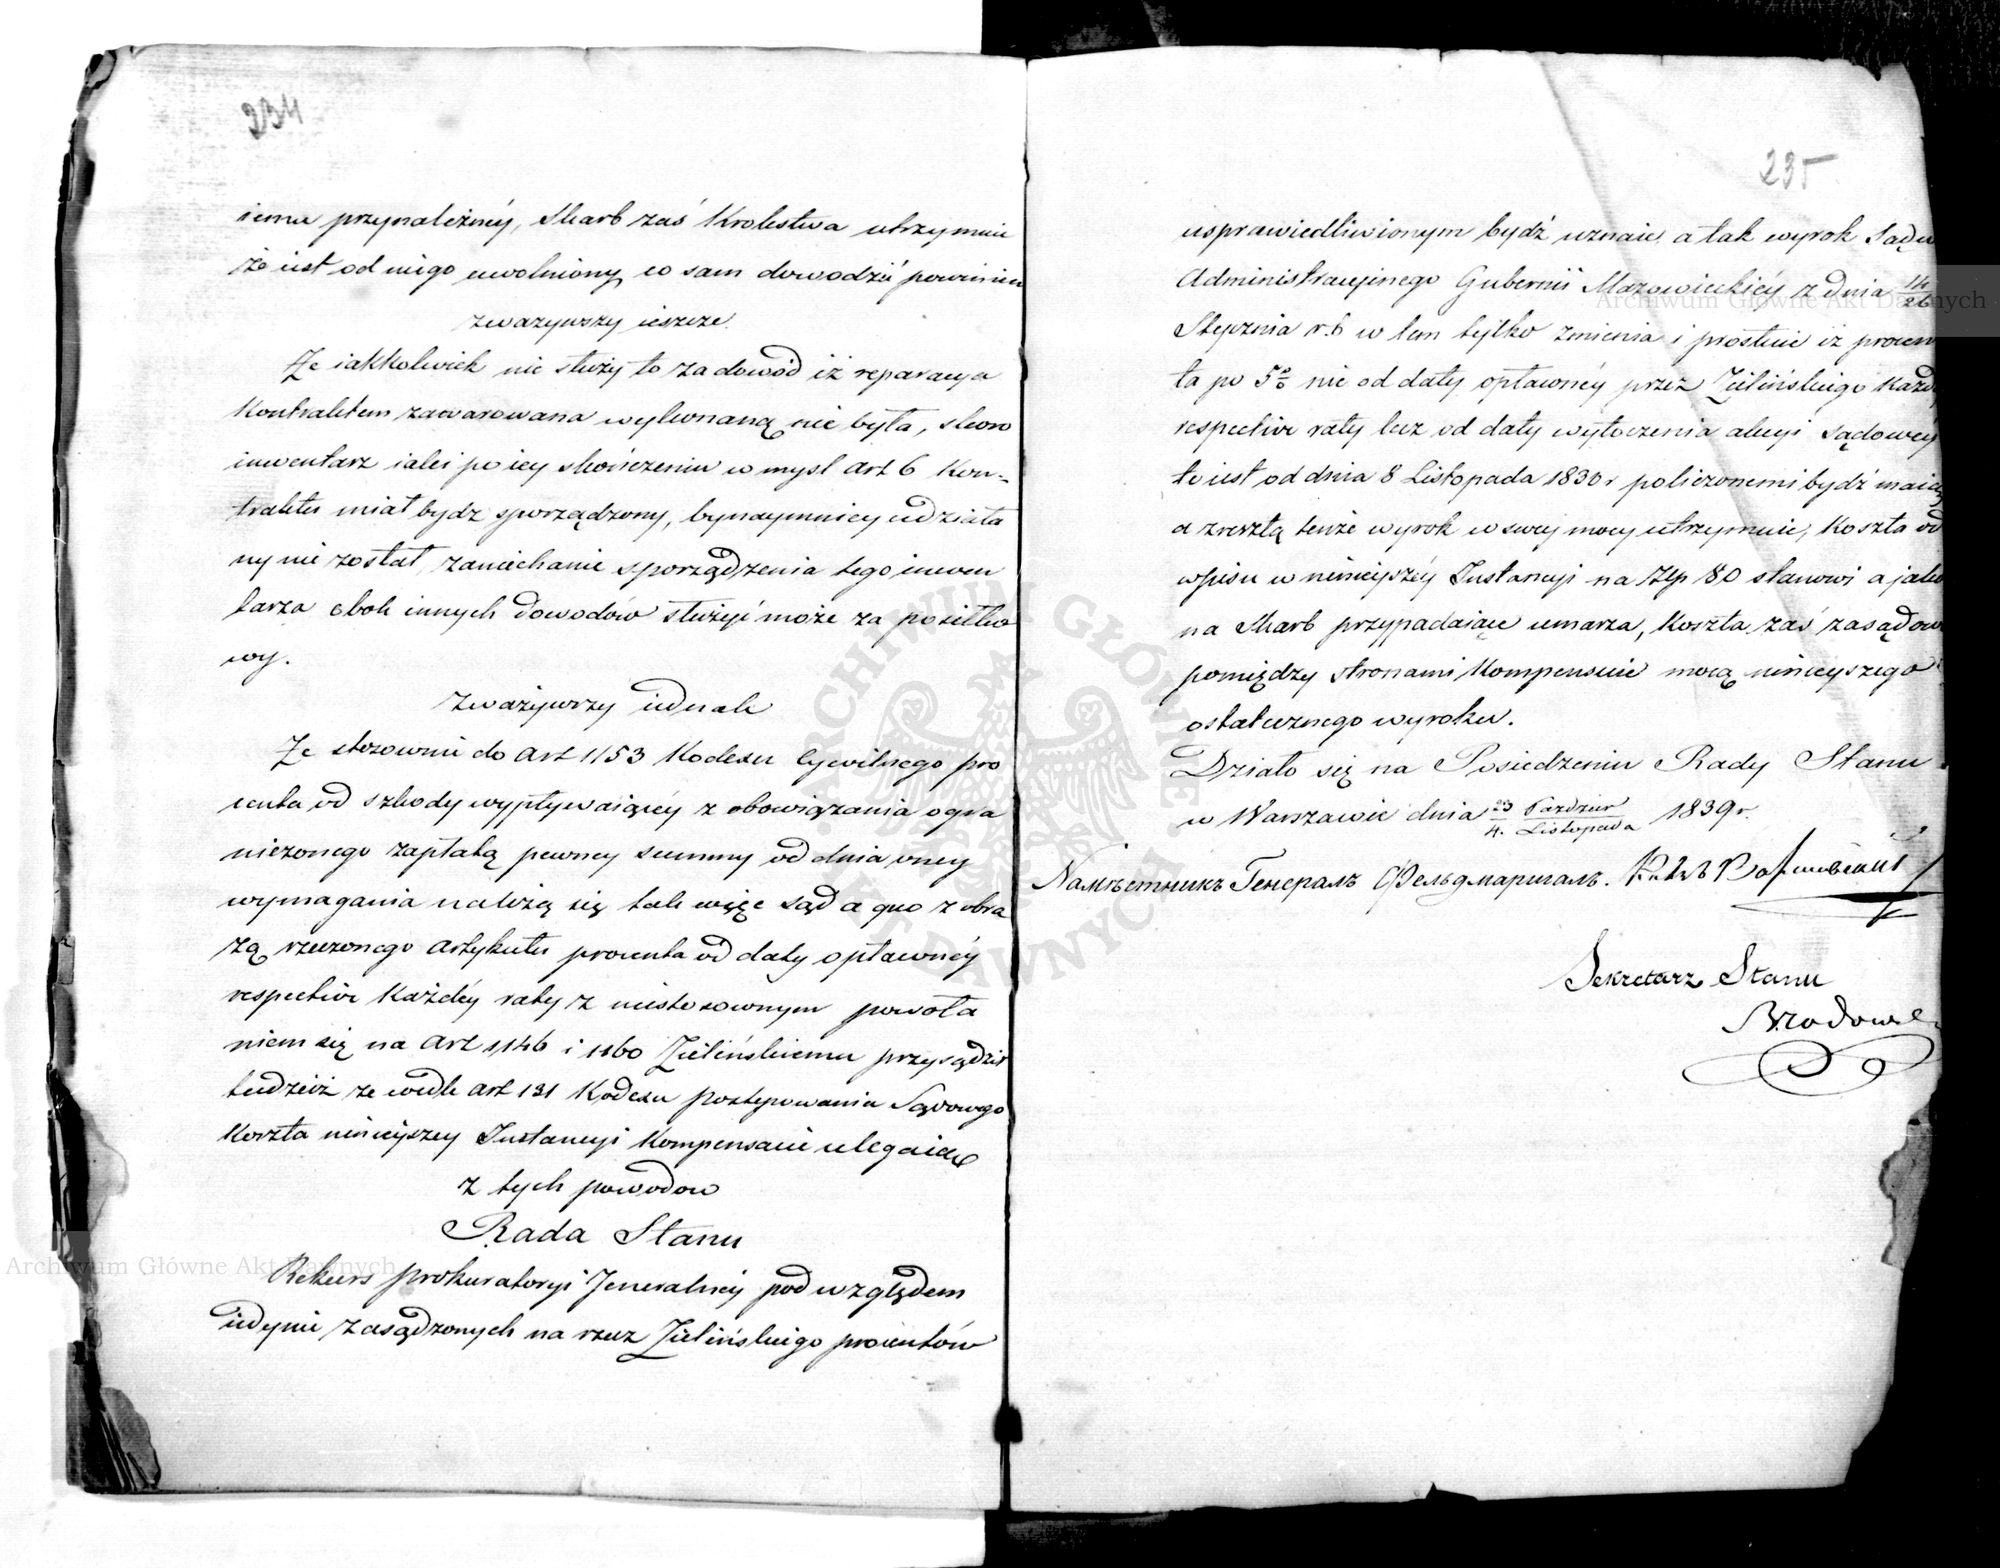 234
iemu przynależnéy, Skarb zaś Krolestwa utrzymuie
że iest od niego uwolniony, co sam dowodzić powinien
zważywszy ieszcze.
Że iakkolwiek nie służy to za dowód iż reparacya
Kontraktem zawarowana wykonaną nie była, skoro
inwentarz iaki po iey skończeniu w mysl Art 6 Kon-
traktu miał bydz sporządzony, bynaymniey udziała
ny nie został, zaniechanie sporządzenia tego inwen
tarza obok innych dowodów służyć może za posiłko
wy.
Zważywszy iednak
Że stosownie do Art 1153 Kodexu Cywilnego pro
centa od szkody wypływaiącéy z obowiązania ogra
niczonego zapłatą pewney summy od dnia oney
wymagania należą się tak więc Sąd a quo z obra
zą rzeczonego Artykułu procenta od daty opławnéy
respective każdéy raty z niestosownym powoła
niem się na Art 1146 i 1160 Zielińskiemu przysądził
tudzież ze wedle Art 131 Kodexu postępowania Sądowego
Koszta ninieyszey Instancyi Kompensacie ulegaią
z tych powodow
Rada Stanu
Rekurs Prokuratoryi Jeneralney pod względem
iedynie zasądzonych na rzecz Zielińskiego procentów
235
usprawiedliwionym bydź uznaie, a tak wyrok Sądu
Administracyinego Gubernii Mazowieckiéy z dnia 14/26
Stycznia r. b w tem tylko zmienia i prostuie iż procen
ta po 5% nie od daty opławnéy przez Zielińskiego każdéy
respective raty lecz od daty wytoczenia akcyi Sądowéy
to iest od dnia 8 Listopada 1830 r policzonemi bydź maią
a zresztą tenże wyrok w swey mocy utrzymuie, Koszta od
wpisu w ninieyszéy Instancyi na Złp 80 stanowi a jako
na Skarb przypadaiące umarza, Koszta zaś zasądow
pomiędzy stronami Kompensuie mocą ninieyszego
ostatecznego wyroku.
Działo się na Posiedzeniu Rady Stanu
w Warszawie dnia 23 Paździer/4. Listopada 1839 r.
Намѣстникъ Генералъ Фельдмаршалъ.
Sekretarz Stanu
Brodowski
Archiwum Główne Akt Dawnych
Archiwum Główne Akt Dawnych
ARCHIWUM GŁÓWNE AKT DAWNYCH